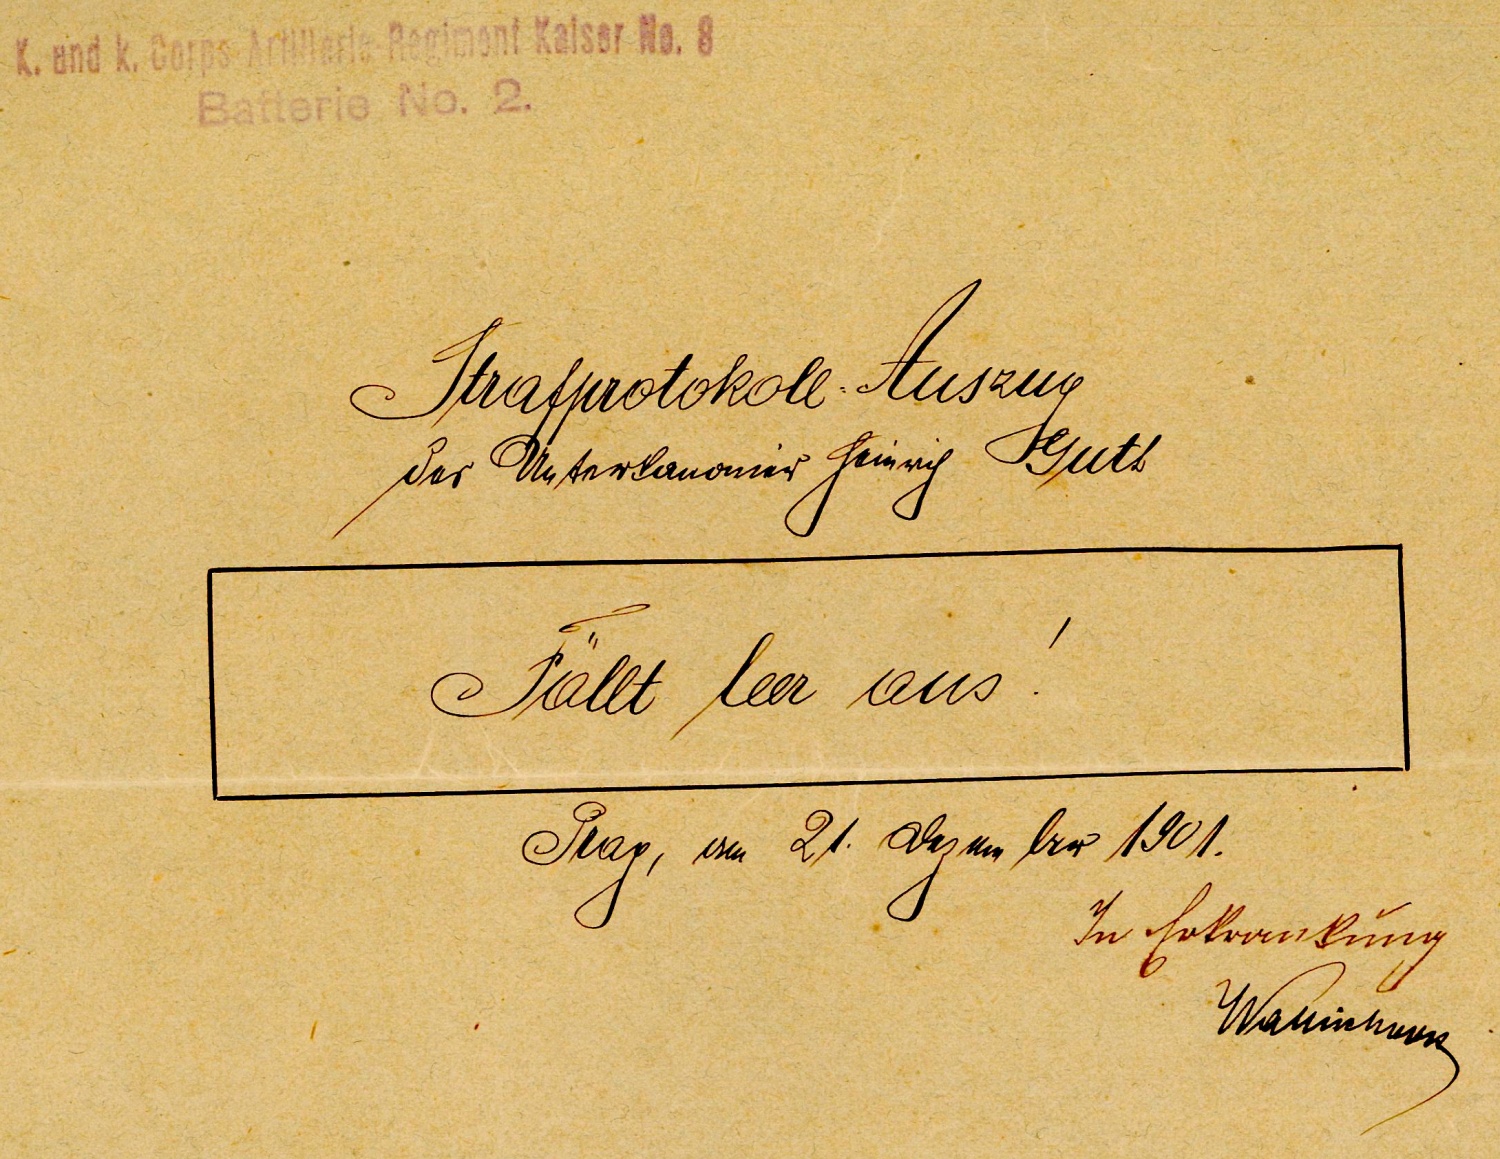 K. und k. Corps-Artillerie-Regiment Kaiser No. 8
Batterie No. 2.
Strafprotokoll-Auszug
des Unterkanonier Heinrich Guth
Fällt leer aus!
Prag, am 21. Dezember 1901.
In Erkrankung